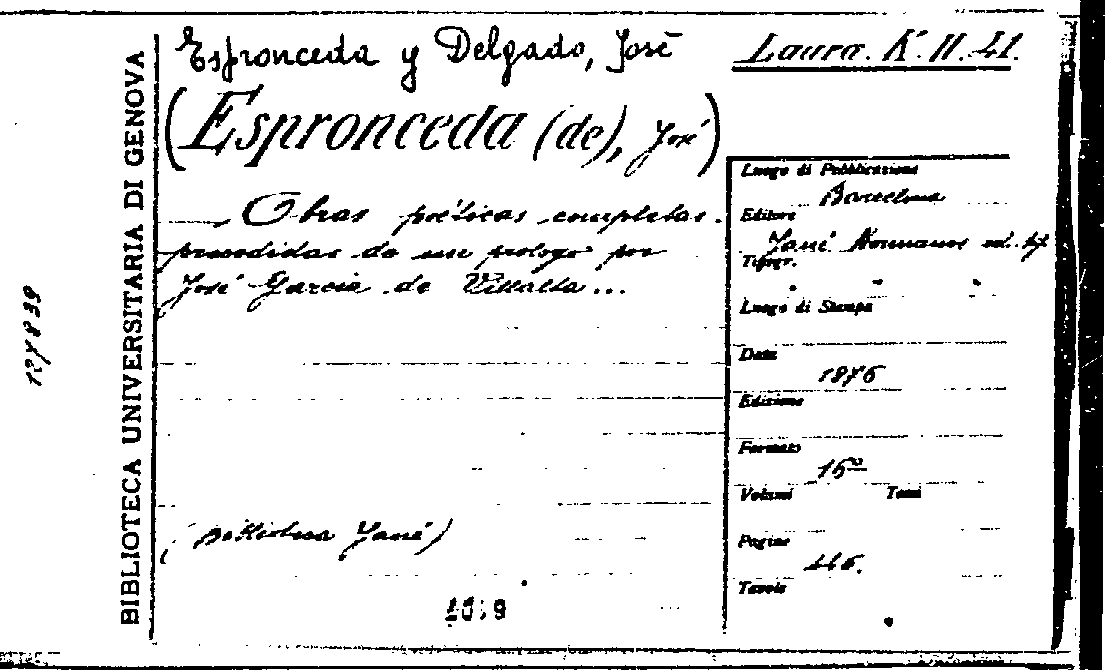 Espronceda y Delgado, José
Laura. K. II. 41.
(Espronceda (de), José)
Obras poéticas completas.
precedidas de un prologo por
José Garcia de Villalta...
(Biblioteca Jané)
BIBLIOTECA UNIVERSITARIA DI GENOVA
127839
Luogo di Pubblicazione
Barcelona
Editore
Jané Hermanos
Tipogr.
Luogo di Stampa
Data
1876
Edizione
Formato
16º
Volumi Tomi
Pagine
Tavole